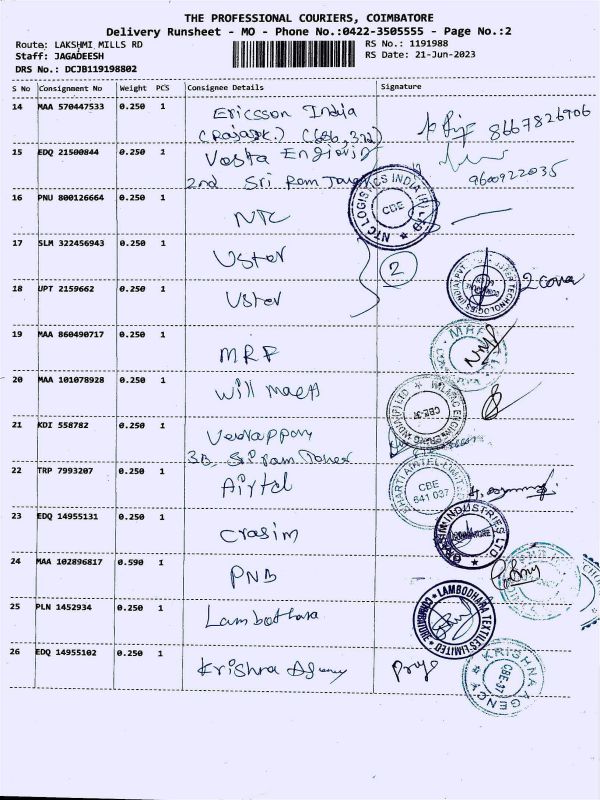 THE PROFESSIONAL COURIERS, COIMBATORE
Delivery Runsheet - MO - Phone No.:0422-3505555 - Page No.:2
Route: LAKSHMI MILLS RD RS No.: 1191988
Staff: JAGADEESH RS Date: 21-Jun-2023
DRS No.: DCJB119198802
S No Consignment No Weight PCS Consignee Details Signature
14 MAA 570447533 0.250 1 Ericsson India
8667826906
15 EDQ 21500844 0.250 1
2nd Sri Ram
9600922035
16 PNU 800126664 0.250 1 NTC
NTC LOGISTICS INDIA (P) LTD
CBE
17 SLM 322456943 0.250 1 Uster
2
18 UPT 2159662 0.250 1 Uster
2
19 MAA 860490717 0.250 1 MRF
MRF
20 MAA 101078928 0.250 1 will
CBE-37
21 KDI 558782 0.250 1
3B, Sri ram Tower
22 TRP 7993207 0.250 1 Airtel
BHARTI AIRTEL LIMITED
CBE
641 037
23 EDQ 14955131 0.250 1 Crasim
INDUSTRIES LTD
24 MAA 102896817 0.590 1 PNB
25 PLN 1452934 0.250 1
LAMBODHARA TEXTILES LIMITED
COIMBATORE
26 EDQ 14955102 0.250 1 Krishna Agency
KRISHNA AGENCY
CBE-37